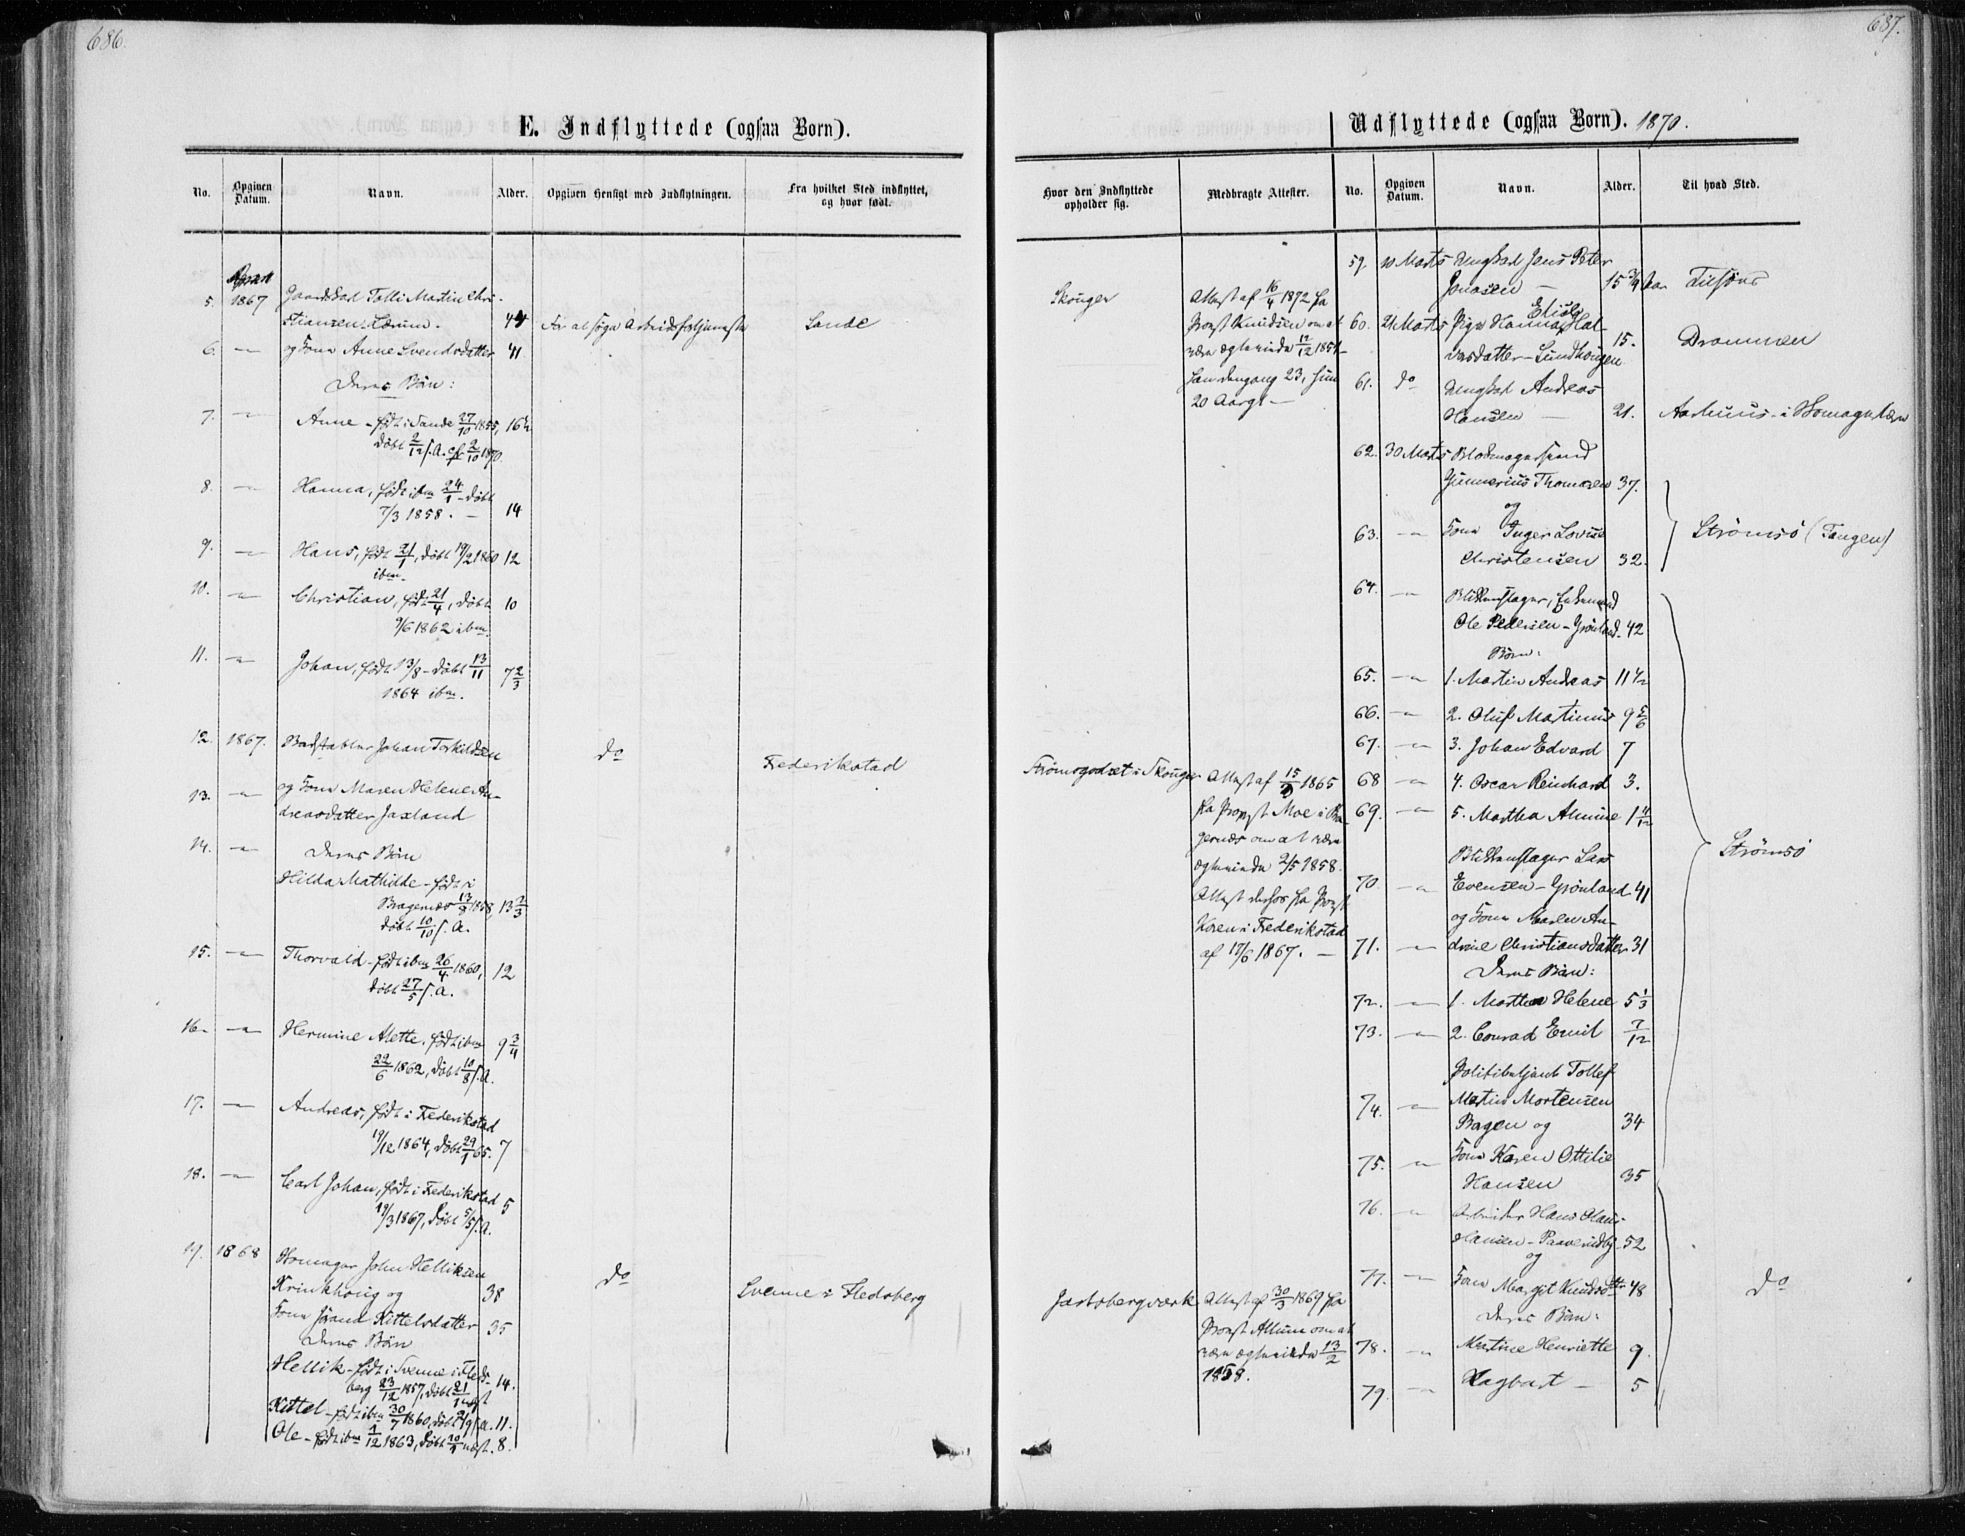 686.
E. Indflyttede (ogsaa Børn).
No.
Opgiven Datum.
Navn.
Alder.
Opgiven Hensigt med Indflytningen.
Fra hvilket Sted indflyttet, og hvor født.
5. 1867 Gaardskarl Tolli Martin Chri-
stiansen Lærum. 44 For at søge Arbeidsfortjeneste Sande
6. — og Kone Anne Svendsdatter 41
Deres Børn:
7. — Anne – født i Sande 27/10 1855, 16½
døbt 2/12 s.A. cf 2/10 1870.
8. — Hanna, født ibm 24/1 – døbt
7/3 1858. — 14
9. — Hans, født 21/1, døbt 19/2 1860 12
ibm.
10. — Christian, født 21/4, døbt 10
9/6 1862 ibm.
11. — Johan, født 13/8 – døbt 13/11 7 2/3
1864 ibm.
12. 1867. Johan Torkildsen do Frederikstad
13. — og Kone Maren Helene An-
dreasdatter Jaxland
14. — Deres Børn
Hilda Mathilde – født i
Bragernæs 13/8 1858, 13 2/3
døbt 10/10 s.A.
15. — Thorvald – født ibm 26/4 1860, 12
døbt 27/5 s.A.
16. — Hermine Alette, født ibm 9 3/4
22/6 1862, døbt 10/8 s.A.
17. — Andreas, født i Frederikstad
19/12 1864, døbt 29/1 65. 7
18. — Carl Johan, født i Frederikstad 5
19/3 1867, døbt 5/5 s.A.
19. 1868 John Helliksen
Krinkhoug og 38 do Svenne i Flesberg
Kone Jørand Kittelsdatter 35
Deres Børn
Hellik – født i Svenne i Fles- 14.
berg 23/12 1857, døbt 21/1 næst
Kittel – født ibm 30/7 1860, døbt s.A. 11.
Ole – født ibm 1/12 1863, døbt 10/1 næst. 8.
687.
Udflyttede (ogsaa Børn). 1870.
Hvor den Indflyttede opholder sig.
Medbragte Attester.
No.
Opgiven Datum.
Navn.
Alder.
Til hvad Sted.
Skouger
Attest af 16/4 1872 fra
Provst Knudsen om at
være ægteviede 12/12 1854
han dengang 23, hun
20 Aar gl. —
Strømsgodset i Skouger
Attest af 15/9 1865
fra Provst Moe i Bra-
gernæs om at være
ægteviede 2/5 1858.
Attest derfor fra Provst
Koren i Frederikstad
af 17/6 1867. —
Jarlsbergværk
Attest af 30/3 1869 fra
Provst Allum om at
være ægteviede 13/2
1858.
59. 10 Marts Ungkarl Jens Peter
Jonasen — 15 3/4 Aar
60. 21 Marts Pige Hanna Elise Hal-
vorsdatter – Lundhougen 15. Drammen
61. do Ungkarl Andreas
Hansen — 21. Aarhuus i
62. 30 Marts
Gunnerius Thomasen 37.
og
63. — Kone Inger Lovise Strømsø (Tangen)
Christensen 32.
64. — Blikkenslager, Enkemand
Ole Pedersen – Grønland – 42
Børn:
65. — 1. Martin Andreas 11½
66. — 2. Oluf Martinius 9 5/6
67. — 3. Johan Edvard 7
68 — 4. Oscar Reinhard 3.
69. — 5. Martha Almine 1 4/12
Blikkenslager Lars Strømsø
70. — Evensen – Grønland 41
og Kone Maren An-
71. — drine Christiansdatter 31
Deres Børn:
72. — 1. Marthea Helene 5 1/3
73. — 2. Conrad Emil 7/12
Politibetjent Tollef
74. — Martin Mortensen
Bagen og 34
75. — Kone Karen Ottilie
Hansen 35
76. — Arbeider Hans Claus
Hansen – 52
og
77. — Kone Margit Knudsdtr 48 do
Deres Børn:
78. — Martine Henriette 9.
79. — Hagbart — 5